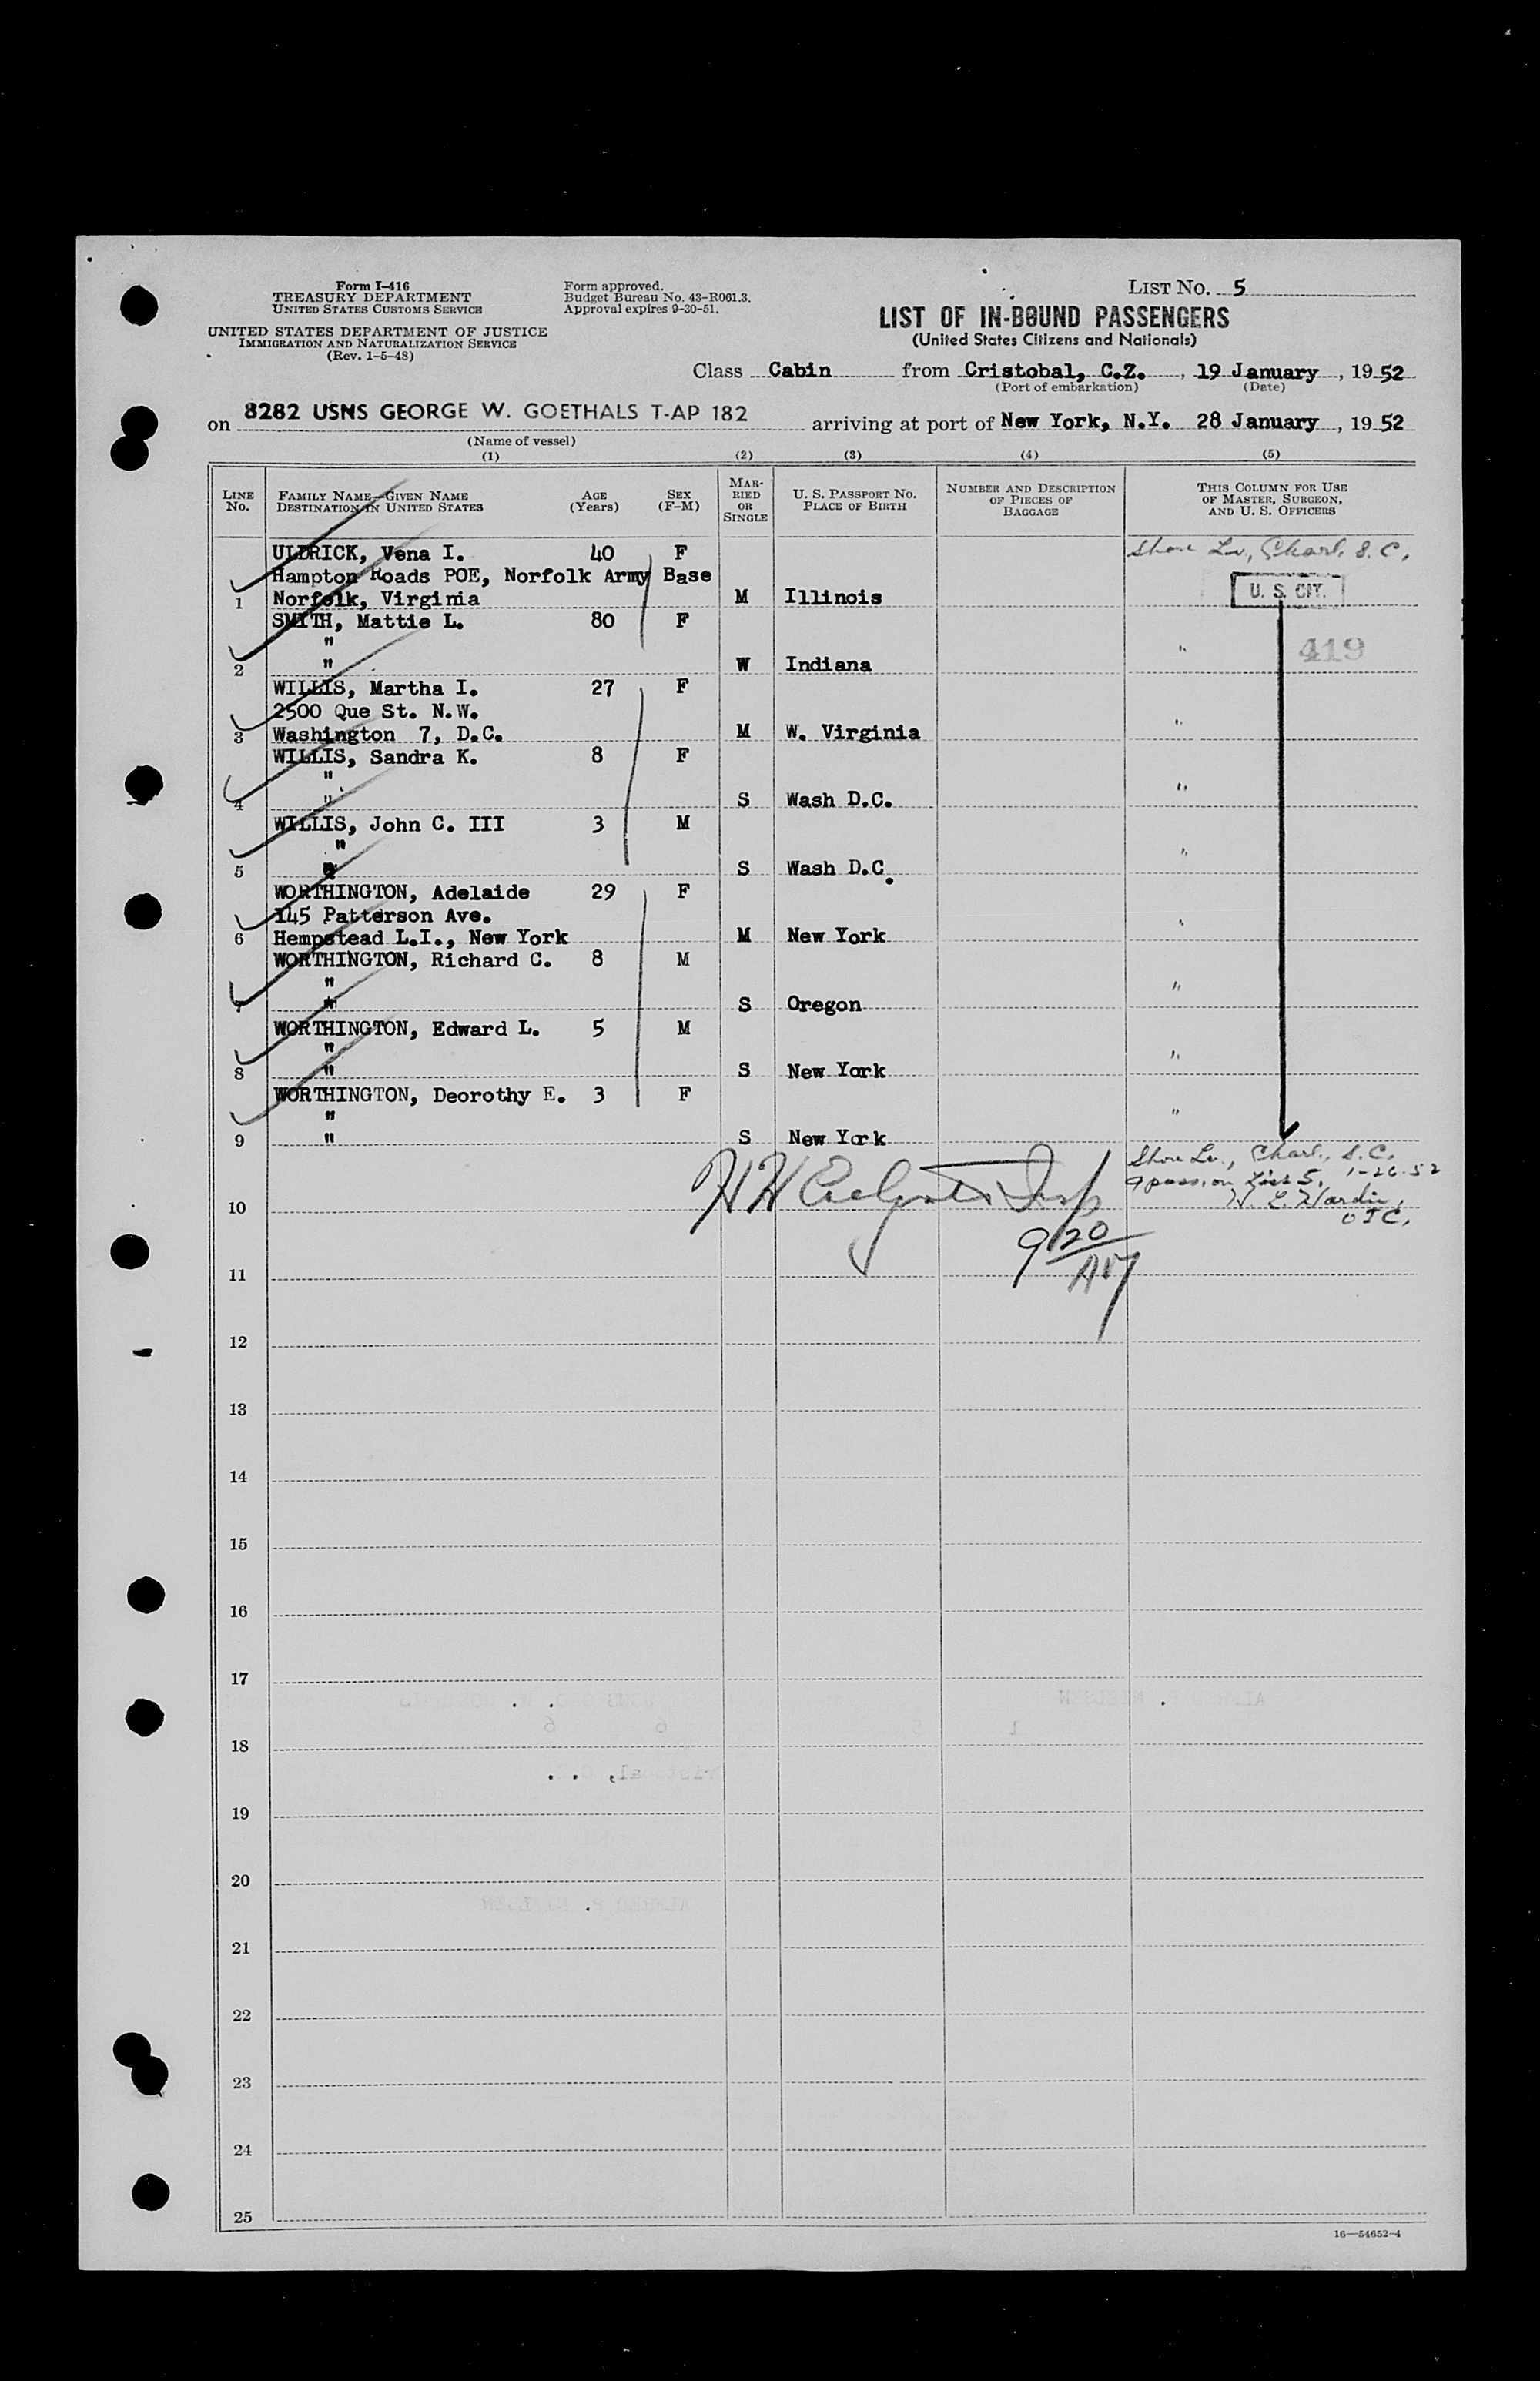 Form I-416
TREASURY DEPARTMENT
UNITED STATES CUSTOMS SERVICE
UNITED STATES DEPARTMENT OF JUSTICE
IMMIGRATION AND NATURALIZATION SERVICE
(Rev. 1-5-48)
Form approved.
Budget Bureau No. 43-R061.3.
Approval expires 9-30-51.
LIST NO. 5
LIST OF IN-BOUND PASSENGERS
(United States Citizens and Nationals)
Class Cabin from Cristobal, C.Z., 19 January, 1952
(Port of embarkation) (Date)
on 8282 USNS GEORGE W. GOETHALS T-AP 182 arriving at port of New York, N.Y. 28 January, 1952
(Name of vessel)
(1) (2) (3) (4) (5)
LINE NO. FAMILY NAME—GIVEN NAME DESTINATION IN UNITED STATES AGE (Years) SEX (F-M) MARRIED OR SINGLE U. S. PASSPORT NO. PLACE OF BIRTH NUMBER AND DESCRIPTION OF PIECES OF BAGGAGE THIS COLUMN FOR USE OF MASTER, SURGEON, AND U. S. OFFICERS
ULDRICK, Vena I. 40 F Shore Lv., Charl. S.C.
Hampton Roads POE, Norfolk Army Base
1 Norfolk, Virginia M Illinois U. S. CIT.
SMITH, Mattie L. 80 F
" " 419
2 " W Indiana
WILLIS, Martha I. 27 F
2500 Que St. N.W. "
3 Washington 7, D.C. M W. Virginia
WILLIS, Sandra K. 8 F
"
4 " S Wash D.C. "
WILLIS, John C. III 3 M
" "
5 " S Wash D.C.
WORTHINGTON, Adelaide 29 F
145 Patterson Ave. "
6 Hempstead L.I., New York M New York
WORTHINGTON, Richard C. 8 M
" "
7 " S Oregon
WORTHINGTON, Edward L. 5 M
" "
8 " S New York
WORTHINGTON, Deorothy E. 3 F
" "
9 " S New York
Shore Lv., Charl., S.C.
9 pass. on List 5. 1-26-52
10 W. E. Hardin,
OIC.
Insp
9 20
AM
11
12
13
14
15
16
17
18
19
20
21
22
23
24
25
16—54652-4